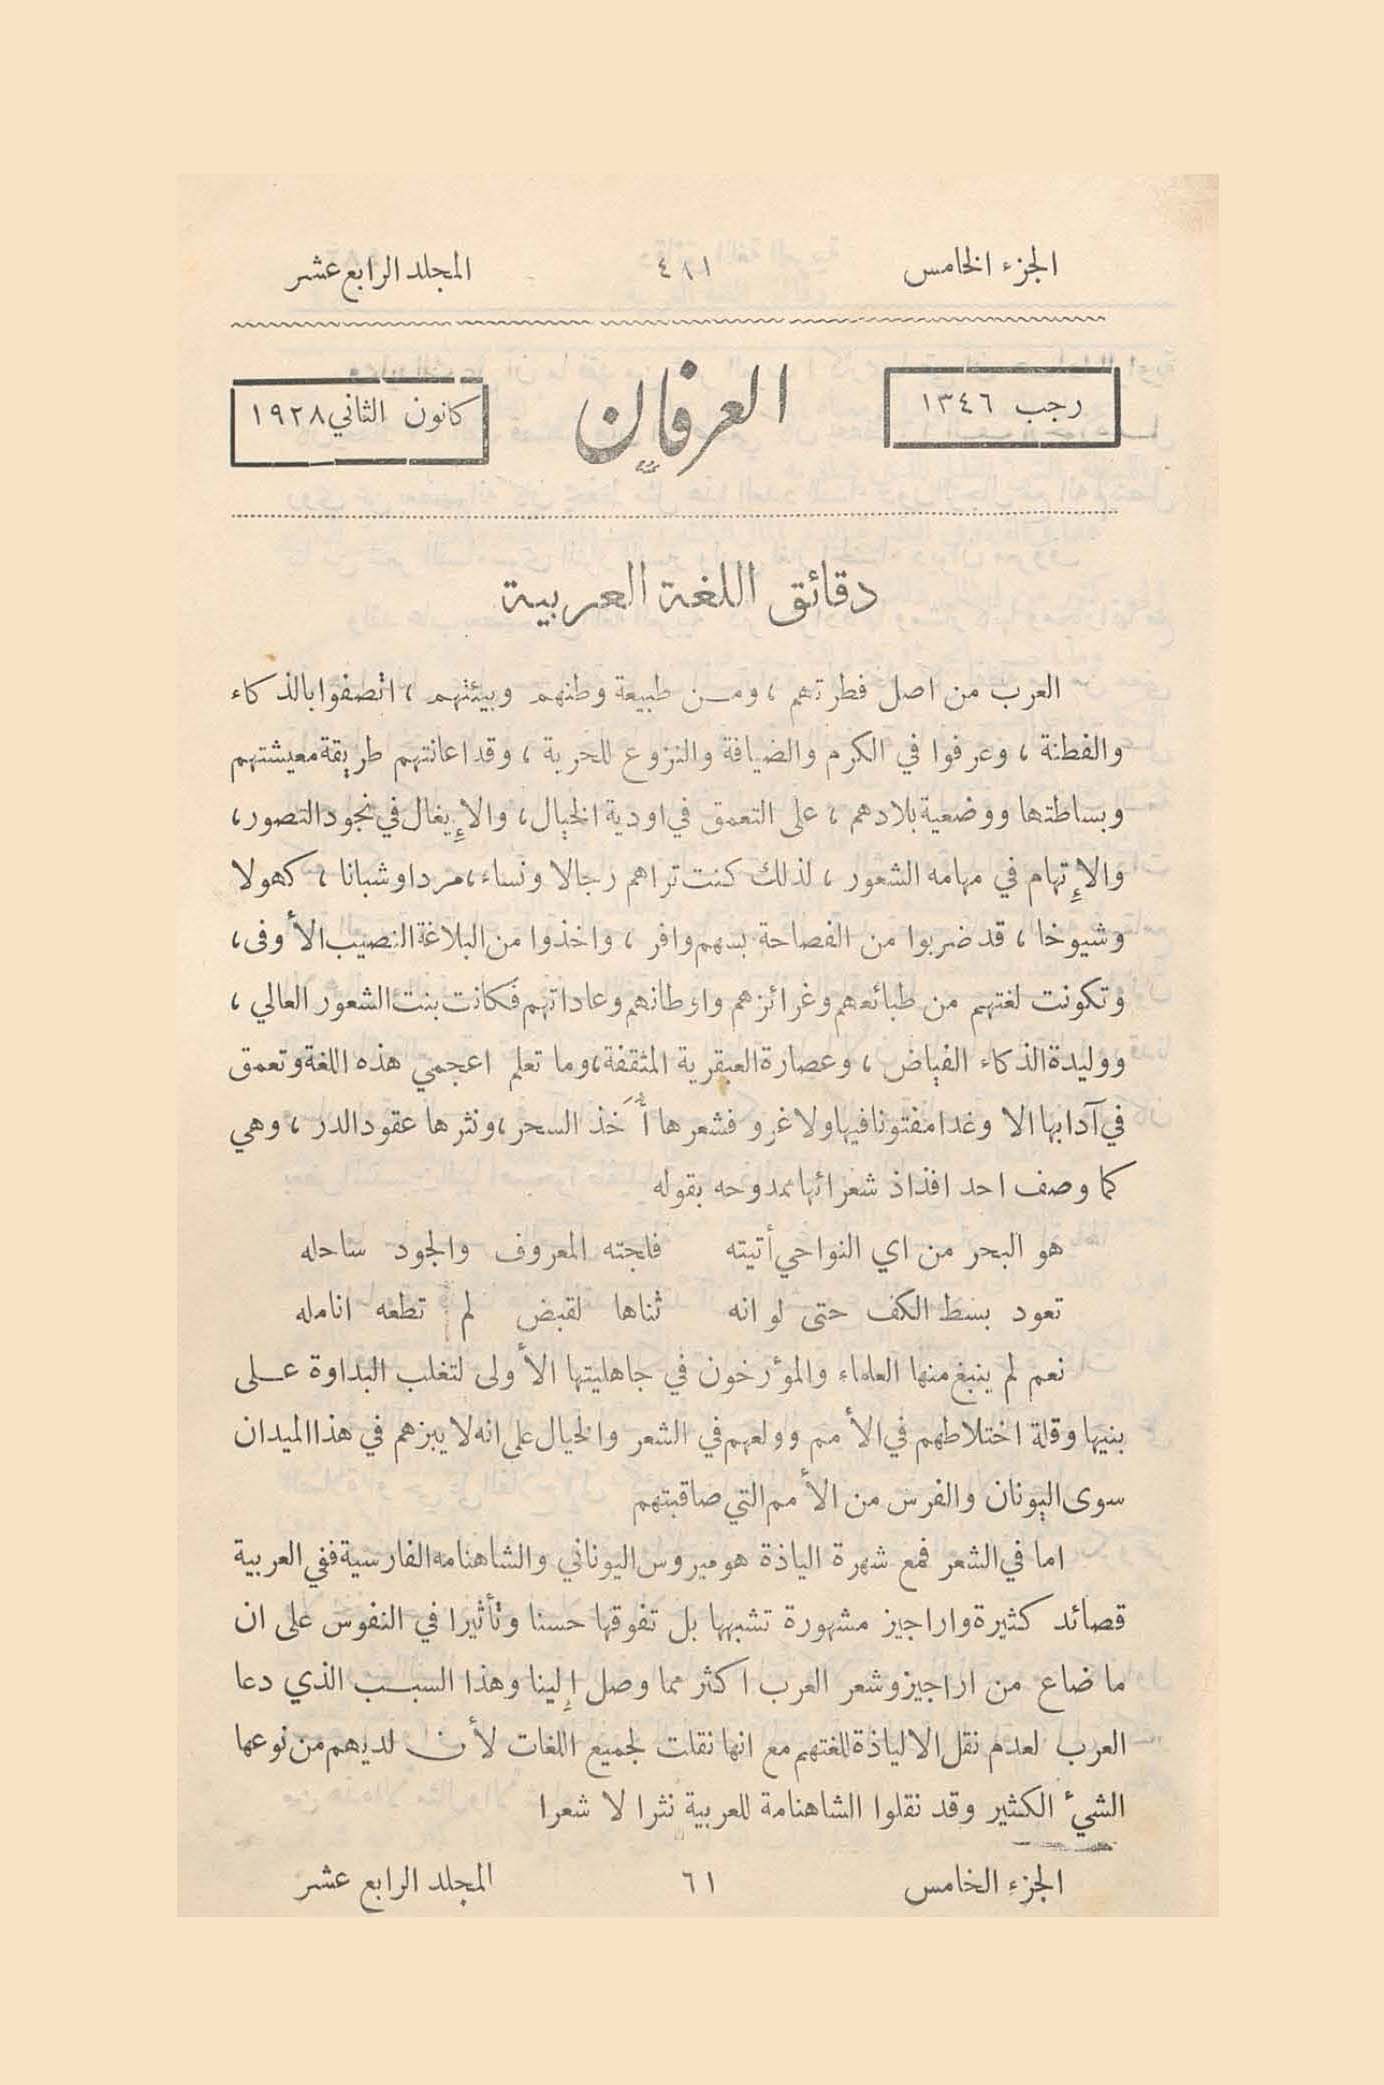 الجزء الخامس ٤٨١ المجلد الرابع عشر
رجب ١٣٤٦ العرفان كانون الثاني ١٩٢٨
دقائق اللغة العربية
العرب من اصل فطرتهم ، ومن طبيعة وطنهم وبيئتهم ، اتصفوا بالذكاء
والفطنة ، وعرفوا في الكرم والضيافة والنزوع للحرية ، وقد اعانتهم طريقة معيشتهم
وبساطتها ووضعية بلادهم ، على التعمق في اودية الخيال ، والإيغال في نجود التصور ،
والإتهام في مهامه الشعور ، لذلك كنت تراهم رجالا ونساء ، مردا وشبانا ، كهولا
وشيوخا ، قد ضربوا من الفصاحة بسهم وافر ، واخذوا من البلاغة النصيب الأوفى ،
وتكونت لغتهم من طبائعهم وغرائزهم واوطانهم وعاداتهم فكانت بنت الشعور العالي ،
ووليدة الذكاء الفياض ، وعصارة العبقرية المثقفة ، وما تعلم اعجمي هذه اللغة وتعمق
في آدابها الا وغدا مفتونا فيها ولا غرو فشعرها أُخَذ السحر ، ونثرها عقود الدر ، وهي
كما وصف احد افذاذ شعرائها ممدوحه بقوله
هو البحر من اي النواحي أتيته فلجته المعروف والجود ساحله
تعود بسط الكف حتى لو انه ثناها لقبض لم تطعه انامله
نعم لم ينبغ منها العلماء والمؤرخون في جاهليتها الأولى لتغلب البداوة على
بنيها وقلة اختلاطهم في الأمم وولعهم في الشعر والخيال على انه لا يبزهم في هذا الميدان
سوى اليونان والفرس من الأمم التي صاقبتهم
اما في الشعر فمع شهرة الياذة هوميروس اليوناني والشاهنامه الفارسية ففي العربية
قصائد كثيرة واراجيز مشهورة تشبهها بل تفوقها حسنا وتأثيرا في النفوس على ان
ما ضاع من اراجيز وشعر العرب اكثر مما وصل إلينا وهذا السبب الذي دعا
العرب لعدم نقل الالياذة للغتهم مع انها نقلت لجميع اللغات لأن لديهم من نوعها
الشيء الكثير وقد نقلوا الشاهنامة للعربية نثرا لا شعرا
الجزء الخامس ٦١ المجلد الرابع عشر